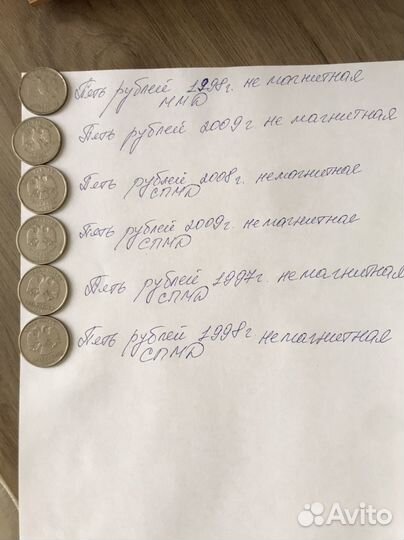 Пять рублей 1998г. не магнитная
ММД
Пять рублей 2009г не магнитная
Пять рублей 2008г. немагнитная
СПМД
Пять рублей 2009г. немагнитная
СПМД
Пять рублей 1997г. немагнитная
СПМД
Пять рублей 1998г немагнитная
СПМД
Avito